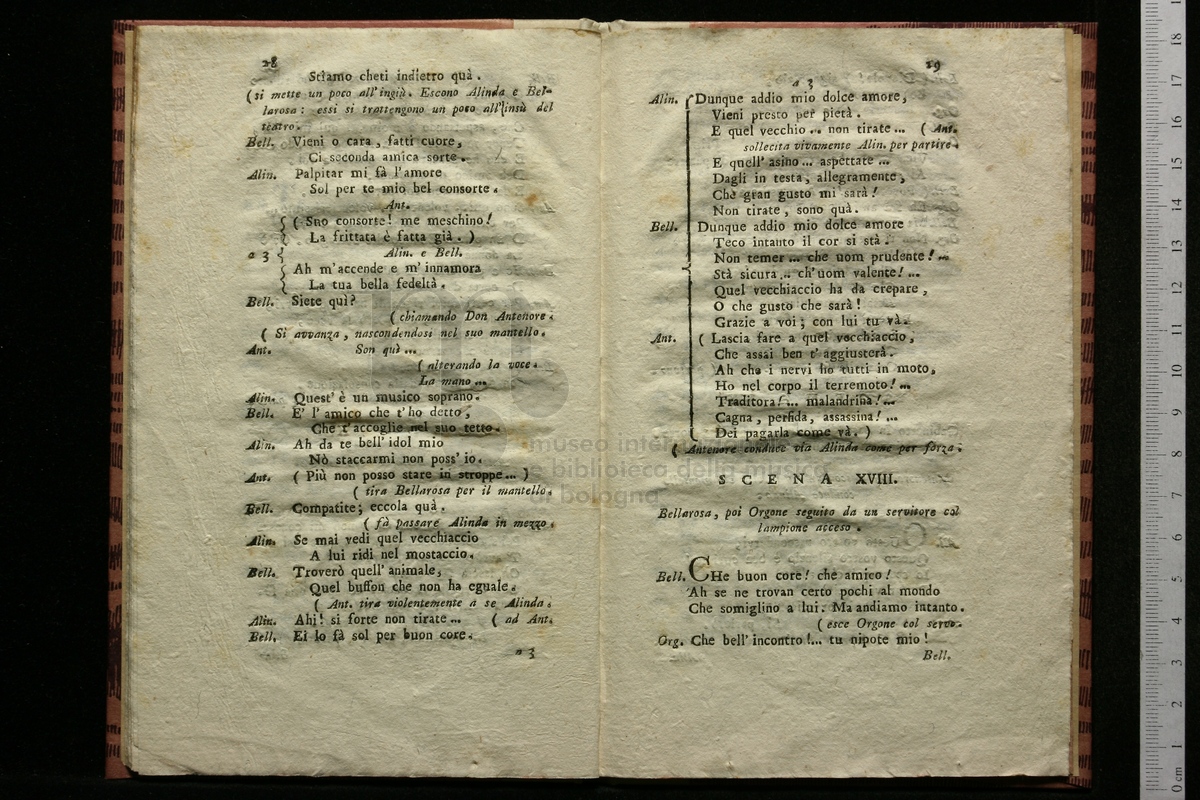 28
Stiamo cheti indietro quà.
(si mette un poco all'ingiù. Escono Alinda e Bel-
larosa: essi si trattengono un poco all'insù del
teatro.
Bell. Vieni o cara, fatti cuore,
Ci seconda amica sorte.
Alin. Palpitar mi fà l'amore
Sol per te mio bel consorte.
Ant.
( Suo consorte! me meschino!
La frittata è fatta già. )
a 3 Alin. e Bell.
Ah m'accende e m'innamora
La tua bella fedeltà.
Bell. Siete quì?
( chiamando Don Antenore.
( Si avvanza, nascondendosi nel suo mantello.
Ant. Son quì ...
( alterando la voce.
La mano ...
Alin. Quest' è un musico soprano.
Bell. E' l' amico che t'ho detto,
Che t'accoglie nel suo tetto.
Alin. Ah da te bell' idol mio
Nò staccarmi non poss' io.
Ant. ( Più non posso stare in stroppe... )
( tira Bellarosa per il mantello.
Bell. Compatite; eccola quà.
( fà passare Alinda in mezzo.
Alin. Se mai vedi quel vecchiaccio
A lui ridi nel mostaccio.
Bell. Troverò quell' animale,
Quel buffon che non ha eguale.
( Ant. tira violentemente a se Alinda.
Alin. Ahi! si forte non tirate ... ( ad Ant.
Bell. Ei lo fà sol per buon core.
a 3
29
a 3
Alin. Dunque addio mio dolce amore,
Vieni presto per pietà.
E quel vecchio ... non tirate ... ( Ant.
sollecita vivamente Alin. per partire.
E quell' asino ... aspettate ...
Dagli in testa, allegramente,
Che gran gusto mi sarà!
Non tirate, sono quà.
Bell. Dunque addio mio dolce amore
Teco intanto il cor si stà.
Non temer ... che uom prudente! ...
Stà sicura ... ch' uom valente! ...
Quel vecchiaccio ha da crepare,
O che gusto che sarà!
Grazie a voi; con lui tu và.
Ant. ( Lascia fare a quel vecchiaccio,
Che assai ben t' aggiusterà.
Ah che i nervi ho tutti in moto,
Ho nel corpo il terremoto! ...
Traditora! ... malandrina! ...
Cagna, perfida, assassina! ...
Dei pagarla come và. )
( Antenore conduce via Alinda come per forza.
SCENA XVIII.
Bellarosa, poi Orgone seguito da un servitore col
lampione acceso.
Bell. CHe buon core! che amico!
Ah se ne trovan certo pochi al mondo
Che somiglino a lui. Ma andiamo intanto.
( esce Orgone col servo.
Org. Che bell' incontro!... tu nipote mio!
Bell.
museo inter
e biblioteca della musica
di bologna
0 cm 1 2 3 4 5 6 7 8 9 10 11 12 13 14 15 16 17 18